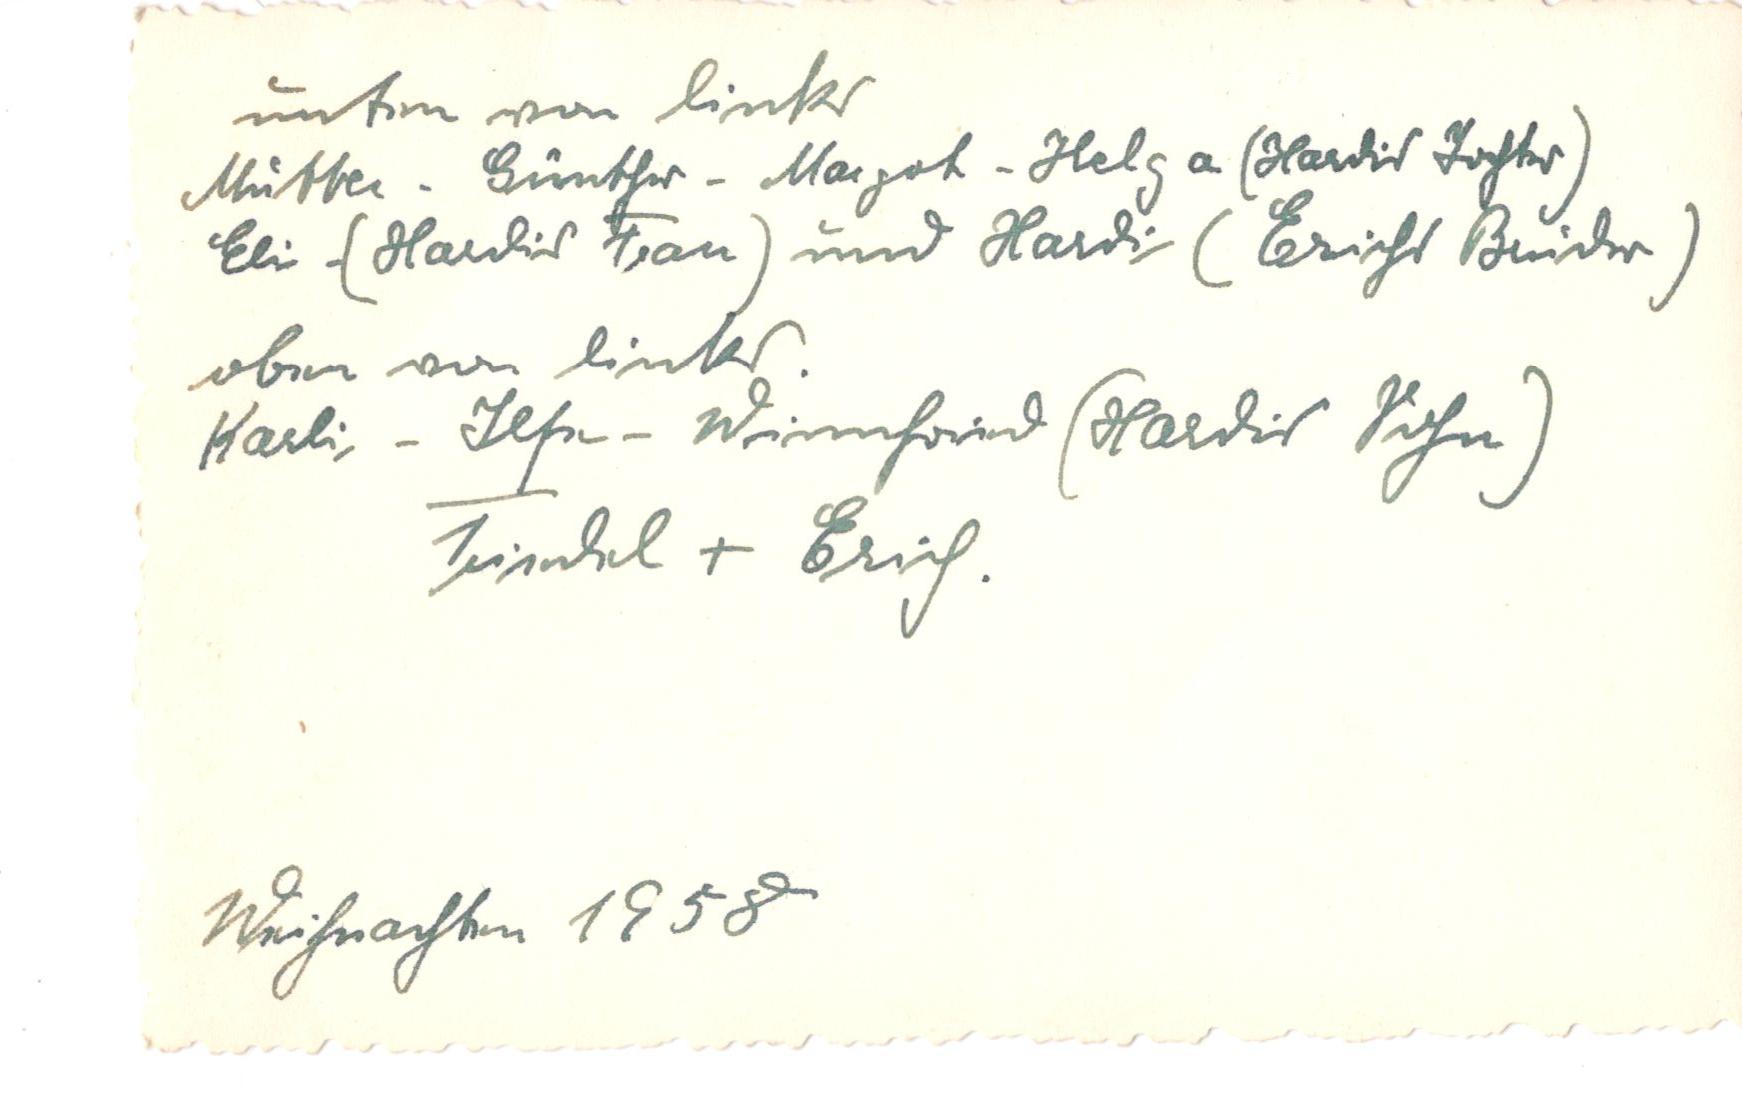 unten von links
Mutter - Günther - Margot - Helga (Hardis Tochter)
Eli - (Hardis Frau) und Hardi (Erichs Bruder)
oben von links.
Karli - Ilse - Winnfried (Hardis Sohn)
Trudel + Erich.
Weihnachten 1958